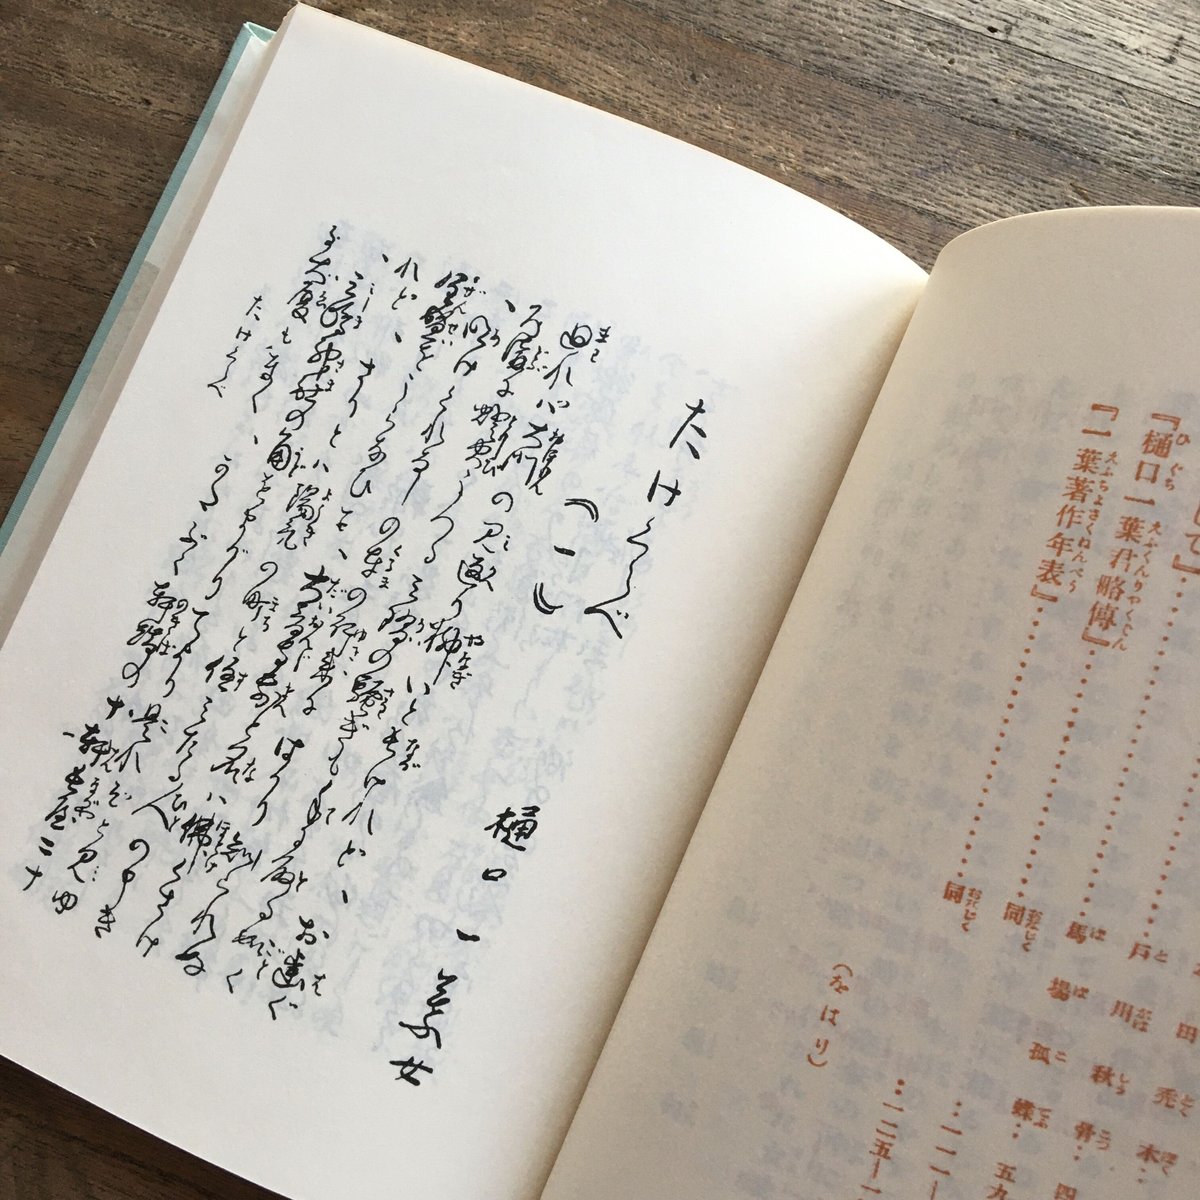 田 禿木
戸川秋骨…四
して』…………馬場孤蝶…五九
『樋口一葉君略傳』…………同…一一一
『一葉著作年表』…………同…一二五―一
(をはり)
たけくらべ
(一)
樋口一葉女
廻れば大門の見返り柳いと長けれど、お齒ぐ
ろ溝に燈火うつる三階の騷ぎも手に取る如く
、明けくれなしの車の行來にはかり知られぬ
全盛をうらなひて、大音寺前と名は佛くさけ
れど、さりとは陽氣の町と住みたる人の申き
、三嶋神社の角をまがりてより是れぞと見ゆ
る大厦もなく、かたぶく軒端の十軒長屋二十
たけくらべ